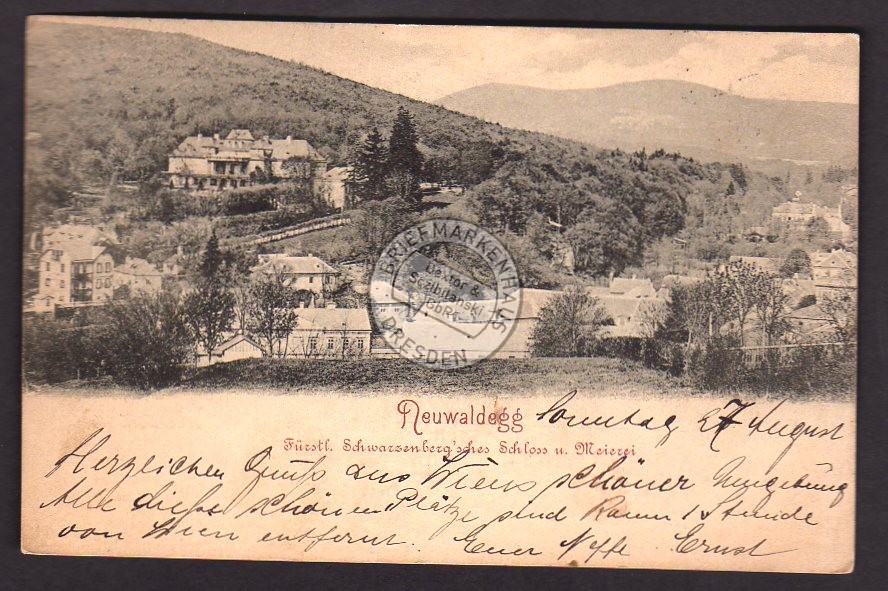 BRIEFMARKENHAUS
DRESDEN
Neuwaldegg
Sonntag 27 August
Fürstl. Schwarzenberg'sches Schloss u. Meierei
Herzlichen Gruß aus Wiens schöner Umgebung
Alle diese schönen Plätze sind kaum 1 Stunde
von Wien entfernt. Euer Ernst